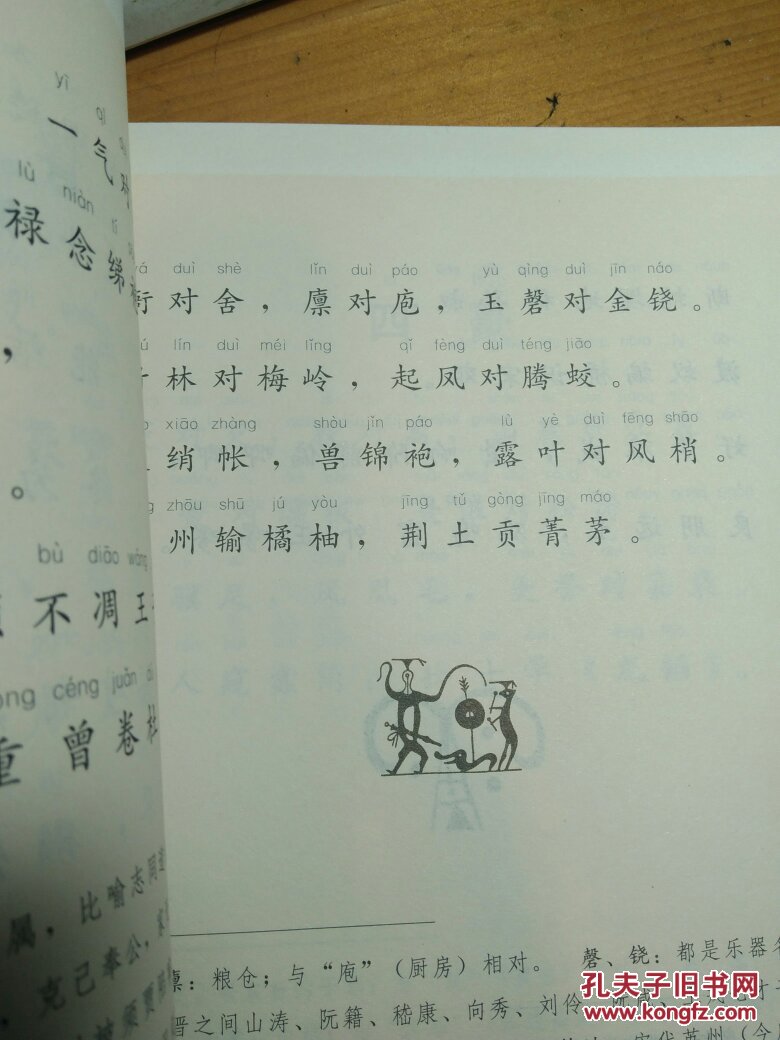 yī qì
一 气
lù niàn
禄 念 绨
，
。
bù diāo wáng
不 凋 王
céng juǎn
重 曾 卷
属，比喻志同道
克己奉公，
duì shè lǐn duì páo yù qìng duì jīn náo
对 舍，廪 对 庖，玉 磬 对 金 铙。
lín duì méi lǐng qǐ fèng duì téng jiāo
林 对 梅 岭，起 凤 对 腾 蛟。
xiāo zhàng shòu jǐn páo lù yè duì fēng shāo
绡 帐，兽 锦 袍，露 叶 对 风 梢。
zhōu shū jú yòu jīng tǔ gòng jīng máo
州 输 橘 柚，荆 土 贡 菁 茅。
廪：粮仓；与“庖”（厨房）相对。 磬、铙：都是乐器名
晋之间山涛、阮籍、嵇康、向秀、刘伶、阮咸、
孔夫子旧书网
www.kongfz.com